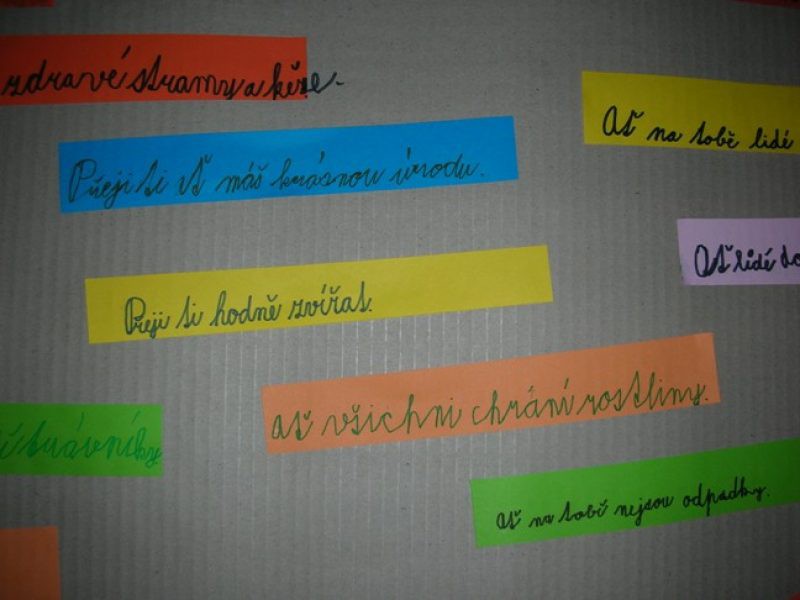 zdravé stromy a keře.
Ať na tobě lidé
Přeji ti ať máš krásnou úrodu.
Ať lidé
Přeji ti hodně zvířat.
ať všichni chrání rostliny.
trávníky.
ať na tobě nejsou odpadky.